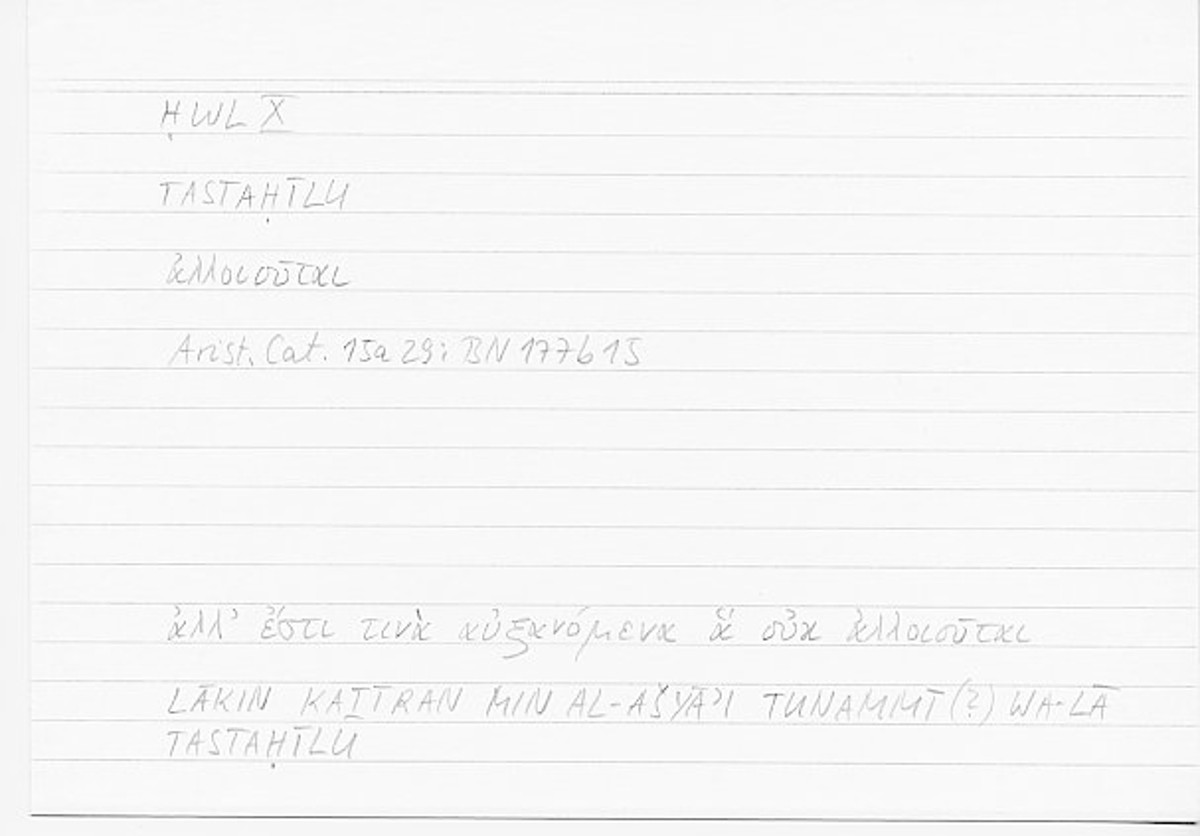 ḤWL X
TASTAḤĪLU
ἀλλοιοῦται
Arist. Cat. 15a 29; BN 177b15
ἀλλ' ἔστι τινὰ αὐξανόμενα ἃ οὐκ ἀλλοιοῦται
LĀKIN KAṮĪRAN MIN AL-AŠYĀʾI TUNAMMĪ(?) WA-LĀ
TASTAḤĪLU